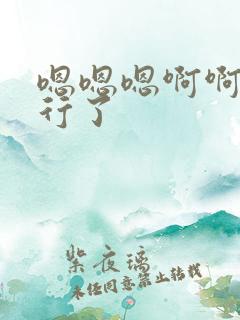 嗯嗯嗯啊啊
行了
紫夜璃
未经同意禁止转载